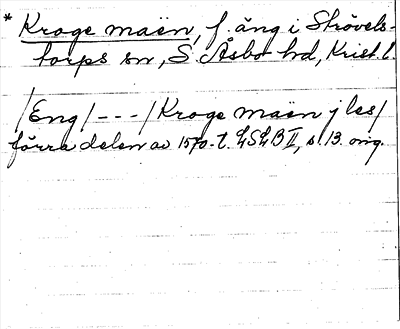 * Kroge maën, f. äng i Strövels-
torps sn, S. Åsbo hd, Krist. l.
/Eng/ --- /Kroge maën j les/
förra delen av 1570-t. LSLB II, s. 13. orig.